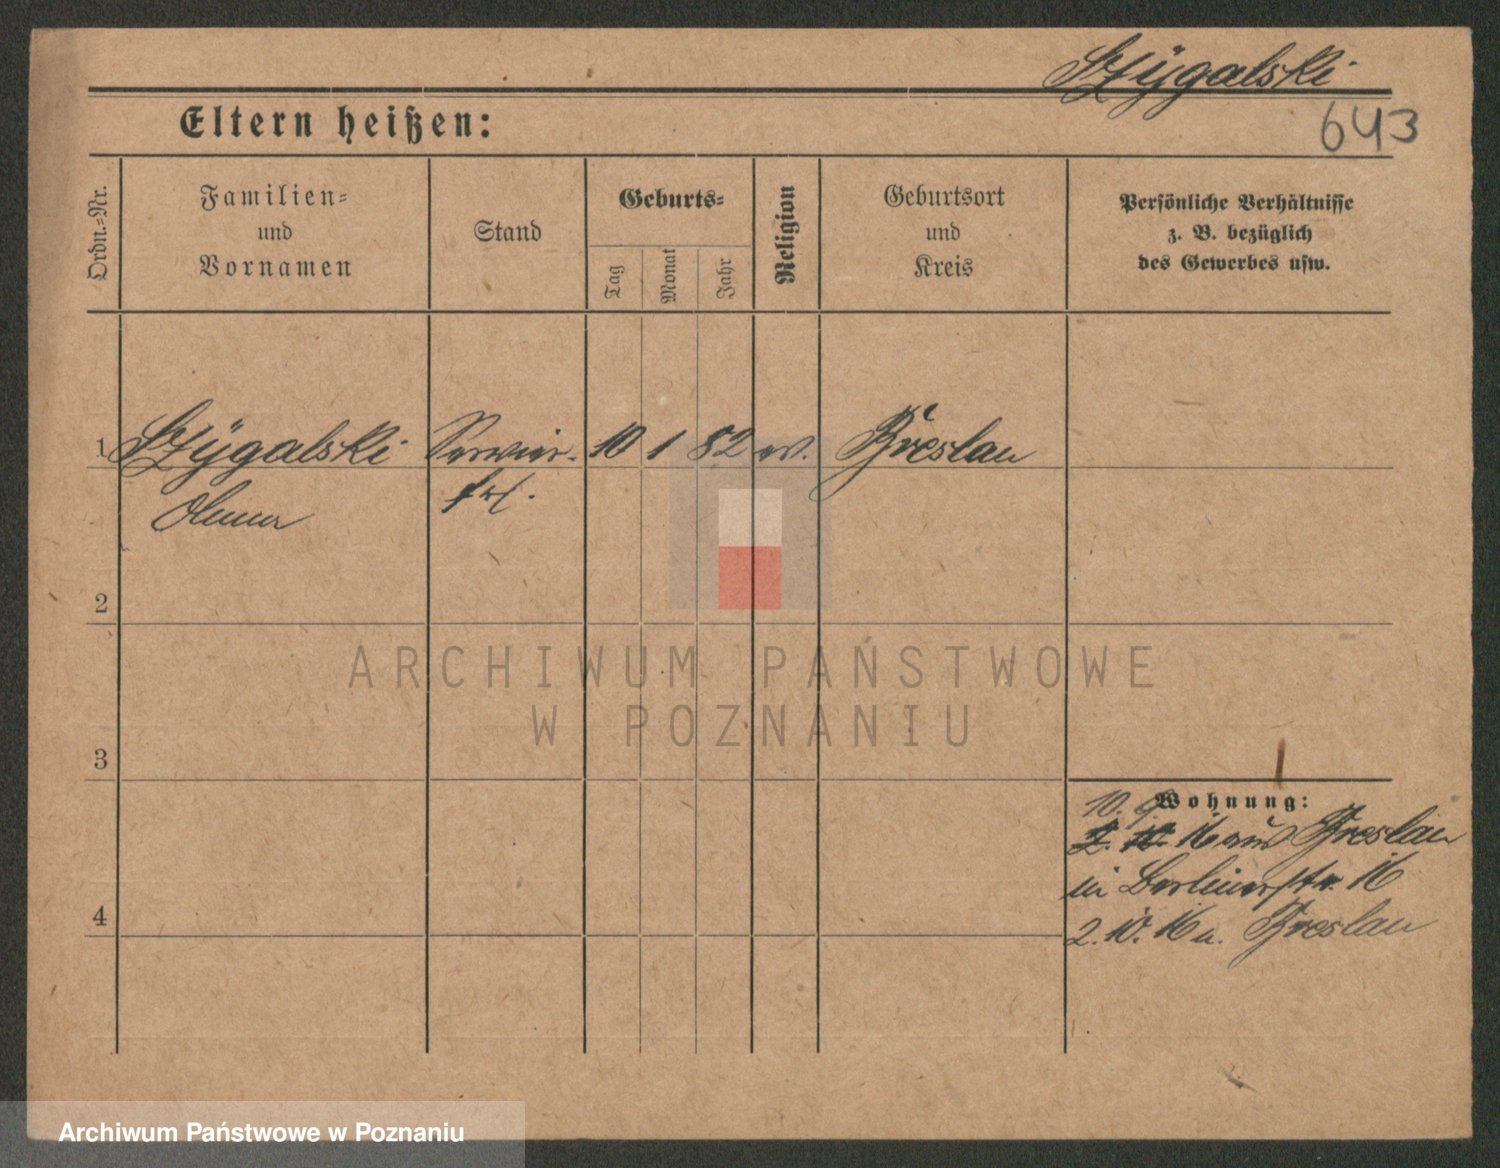 Szÿgalski
643
Eltern heißen:
Ordn.-Nr.
Familien-
und
Vornamen
Stand
Geburts-
Tag
Monat
Jahr
Religion
Geburtsort
und
Kreis
Persönliche Verhältnisse
z. B. bezüglich
des Gewerbes usw.
1 Szÿgalski Servier- 10 1 82 ev. Breslau
frl.
2
3
4
Wohnung:
10. 9.
16 aus Breslau
in Berlinerstr. 16
2. 10. 16 n. Breslau
ARCHIWUM PAŃSTWOWE
W POZNANIU
Archiwum Państwowe w Poznaniu